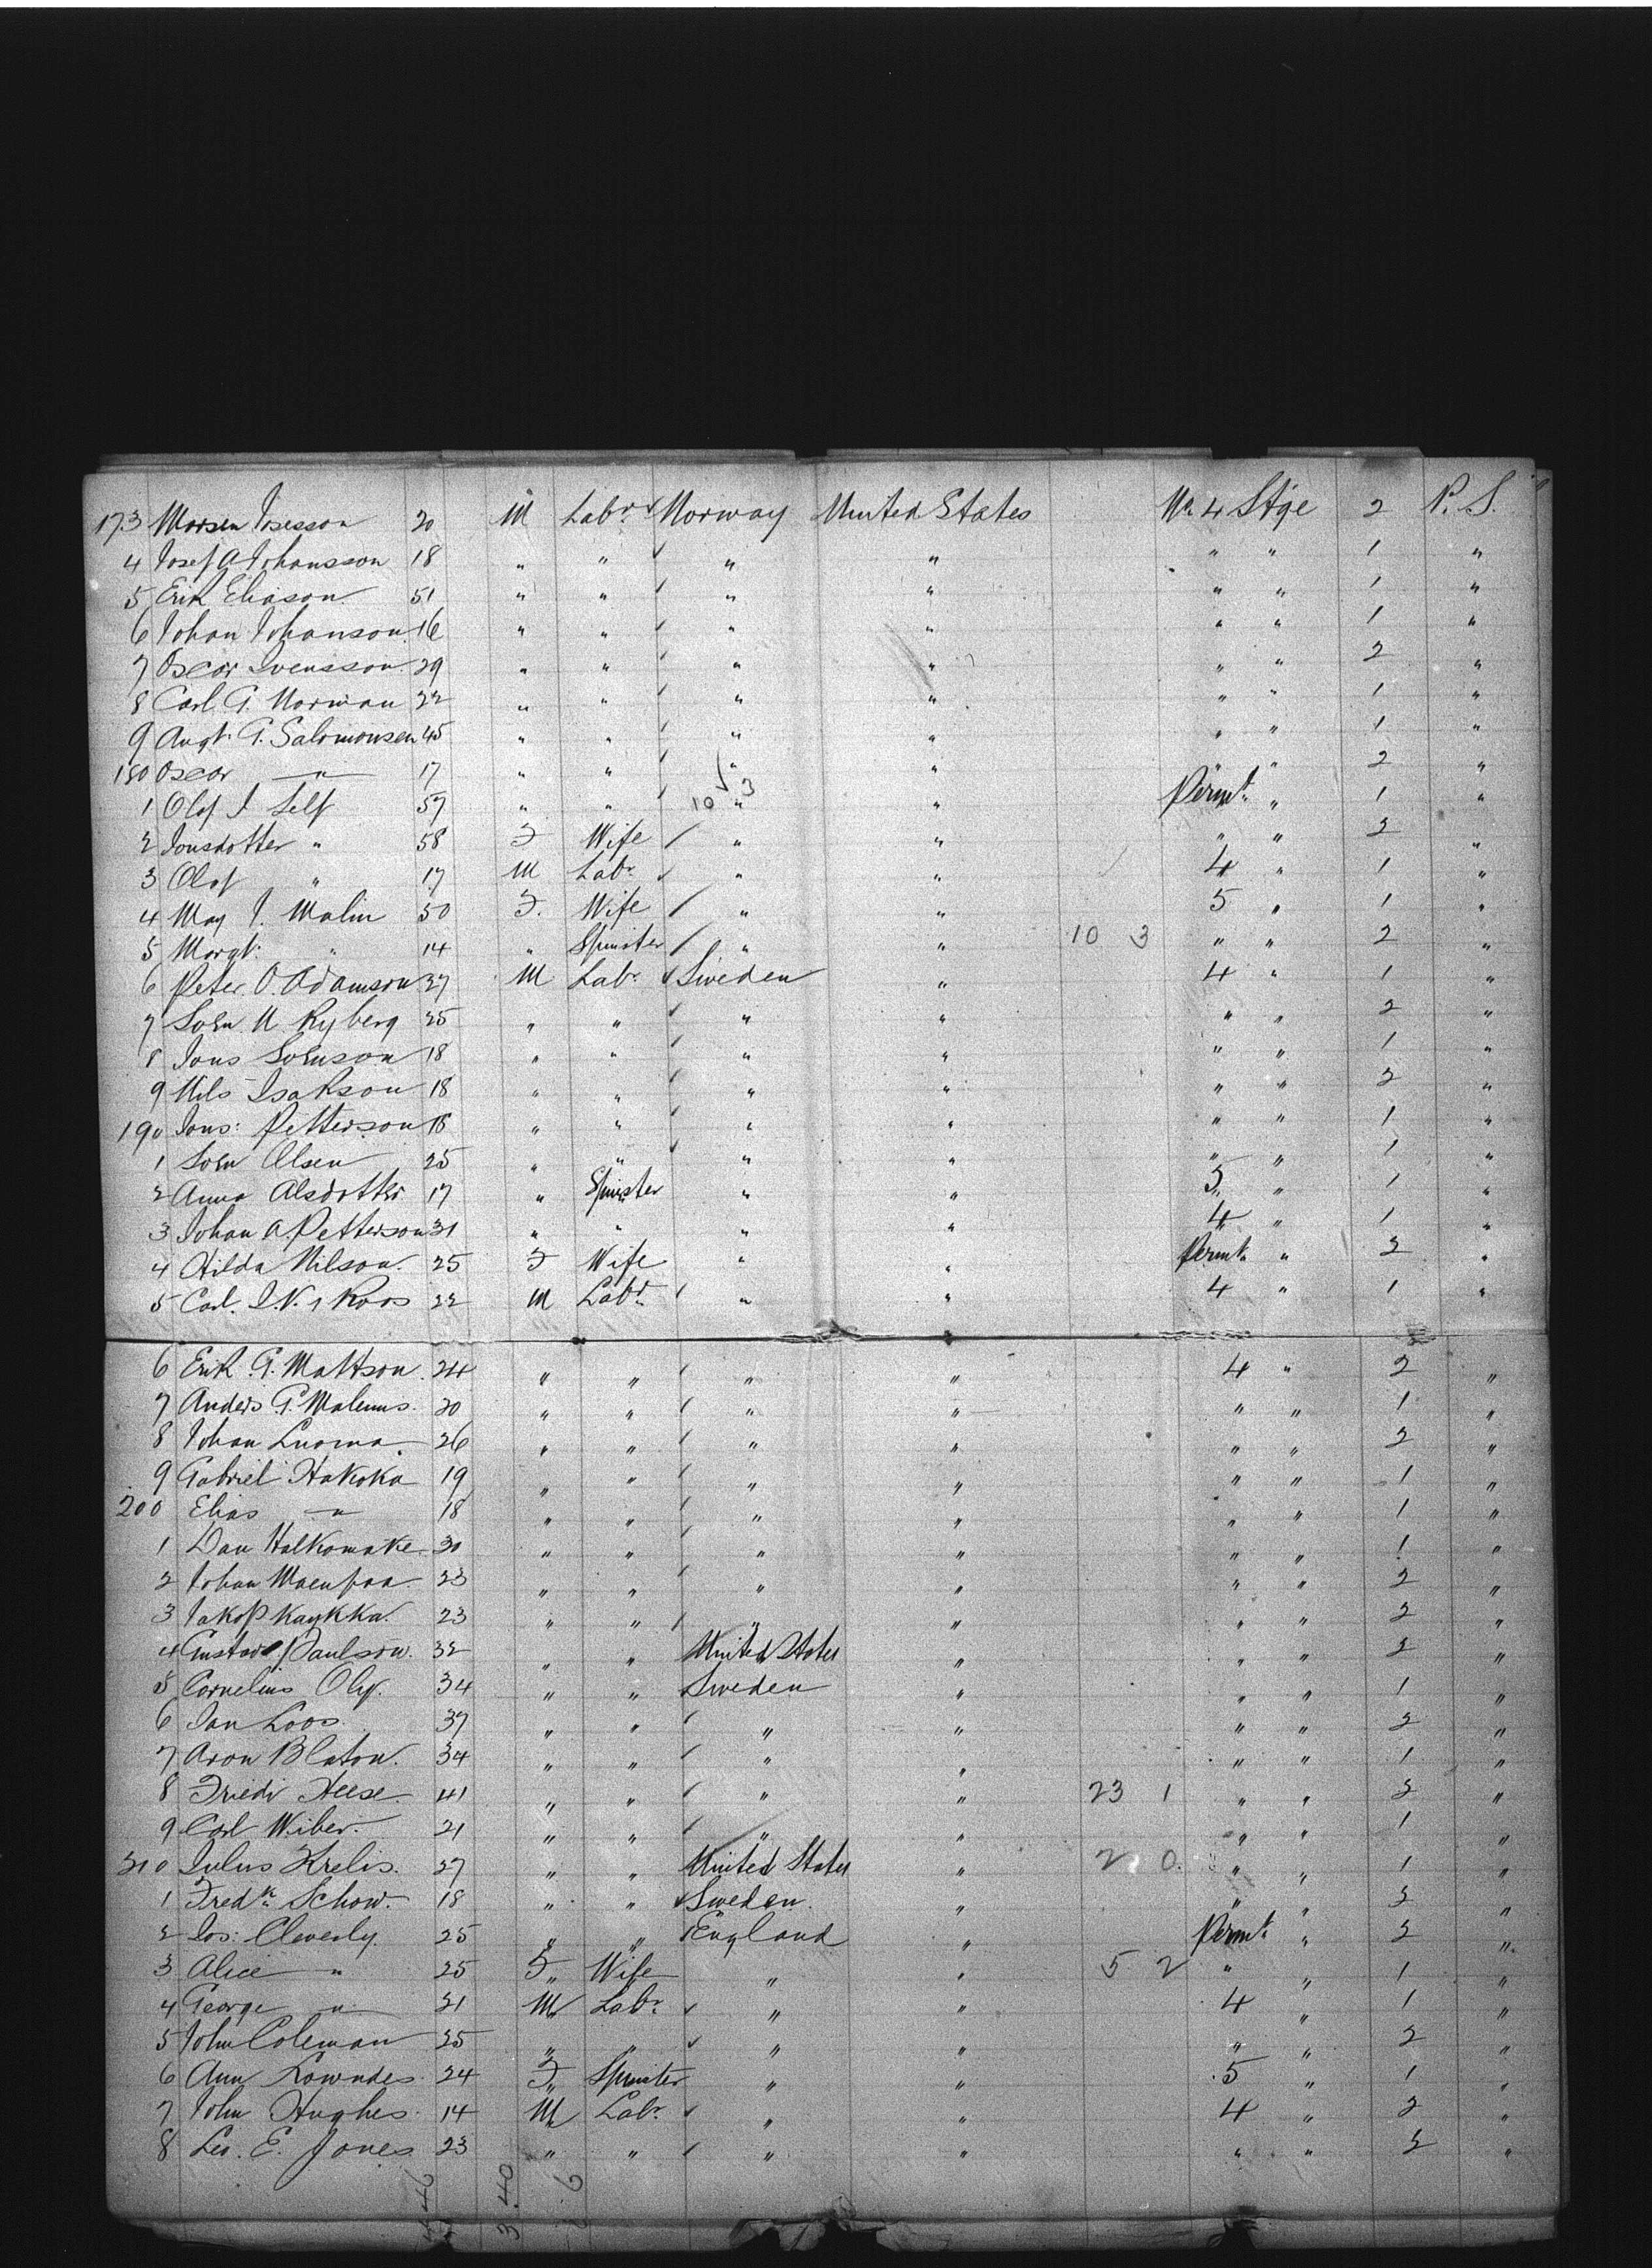 173 Morsen Josesson 20 M Labr Norway United States No. 4 Stge 2 P. S.
4 Josef A Johansson 18 " " " " " " 1 "
5 Erik Eliason 51 " " " " " " 1 "
6 Johan Johanson 16 " " " " " " 1 "
7 Oscar Svensson 29 " " " " " " 2 "
8 Carl G. Norman 22 " " " " " " 1 "
9 Augt. G. Salomonsen 45 " " " " " " 1 "
180 Oscar " 17 " " " " " " 2 "
1 Olof J Self 57 " " 10 3 " " Permt. " 1 "
2 Jonsdotter " 58 F Wife " " " " 2 "
3 Olof " 17 M Labr. " " 4 " 1 "
4 May J. Malin 50 F. Wife " " 5 " 1 "
5 Margt. " 14 " Spinster " " 10 3 " " 2 "
6 Peter O. Adamson 27 M Labr. Sweden " 4 " 1 "
7 Sven N Ryberg 25 " " " " " " 2 "
8 Jons Svenson 18 " " " " " " 1 "
9 Nils Isakson 18 " " " " " " 2 "
190 Jons: Petterson 18 " " " " " " 1 "
1 Sven Olsen 25 " " " " " " 1 "
2 Anna Alsdotter 17 " Spinster " " 5 " 1 "
3 Johan A. Petterson 31 " " " " 4 " 1 "
4 Hilda Nilson. 25 F Wife " " Permt. " 2 "
5 Carl. J. V. Roos 22 M Labr. " " 4 " 1 "
6 Erik G. Mattson. 24 " " " " 4 " 2 "
7 Anders G. Malmus. 20 " " " " " " 1 "
8 Johan Luoma. 26 " " " " " " 2 "
9 Gabriel Hakoka 19 " " " " " " 1 "
200 Elias " 18 " " " " " " 1 "
1 Dan Halkomake. 30 " " " " " " 1 "
2 Johan Maenpaa. 23 " " " " " " 2 "
3 Jakob Kaykka. 23 " " " " " " 2 "
4 Gustave Paulson. 32 " " United States " " " 2 "
5 Cornelius Oly. 34 " " Sweden " " " 1 "
6 Jan Loos. 37 " " " " " " 2 "
7 Aron Blaton. 34 " " " " " " 1 "
8 Friedr Heese. 41 " " " " 23 1 " " 2 "
9 Carl Wiber. 21 " " " " " " 1 "
210 Julius Krelis. 27 " " United States " 2 0. " " 1 "
1 Fredk. Schow. 18 " " Sweden. " " " 2 "
2 Jos: Cleverly. 25 " " England " Permt. " 2 "
3 Alice " 25 F " Wife " " 5 2 " " 1 "
4 George " 21 M Labr. " " 4 " 1 "
5 John Coleman 25 " " " " " " 2 "
6 Ann Lowndes. 24 F " Spinster " " 5 " 1 "
7 John Hughes. 14 M Labr. " " 4 " 2 "
8 Leo. E. Jones 23 " " " " " " 2 "
3.40